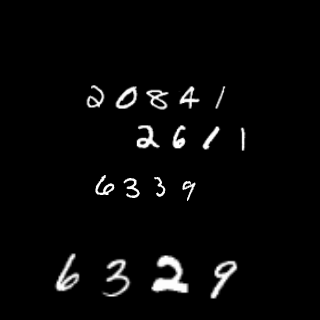 20841
2611
6339
6329